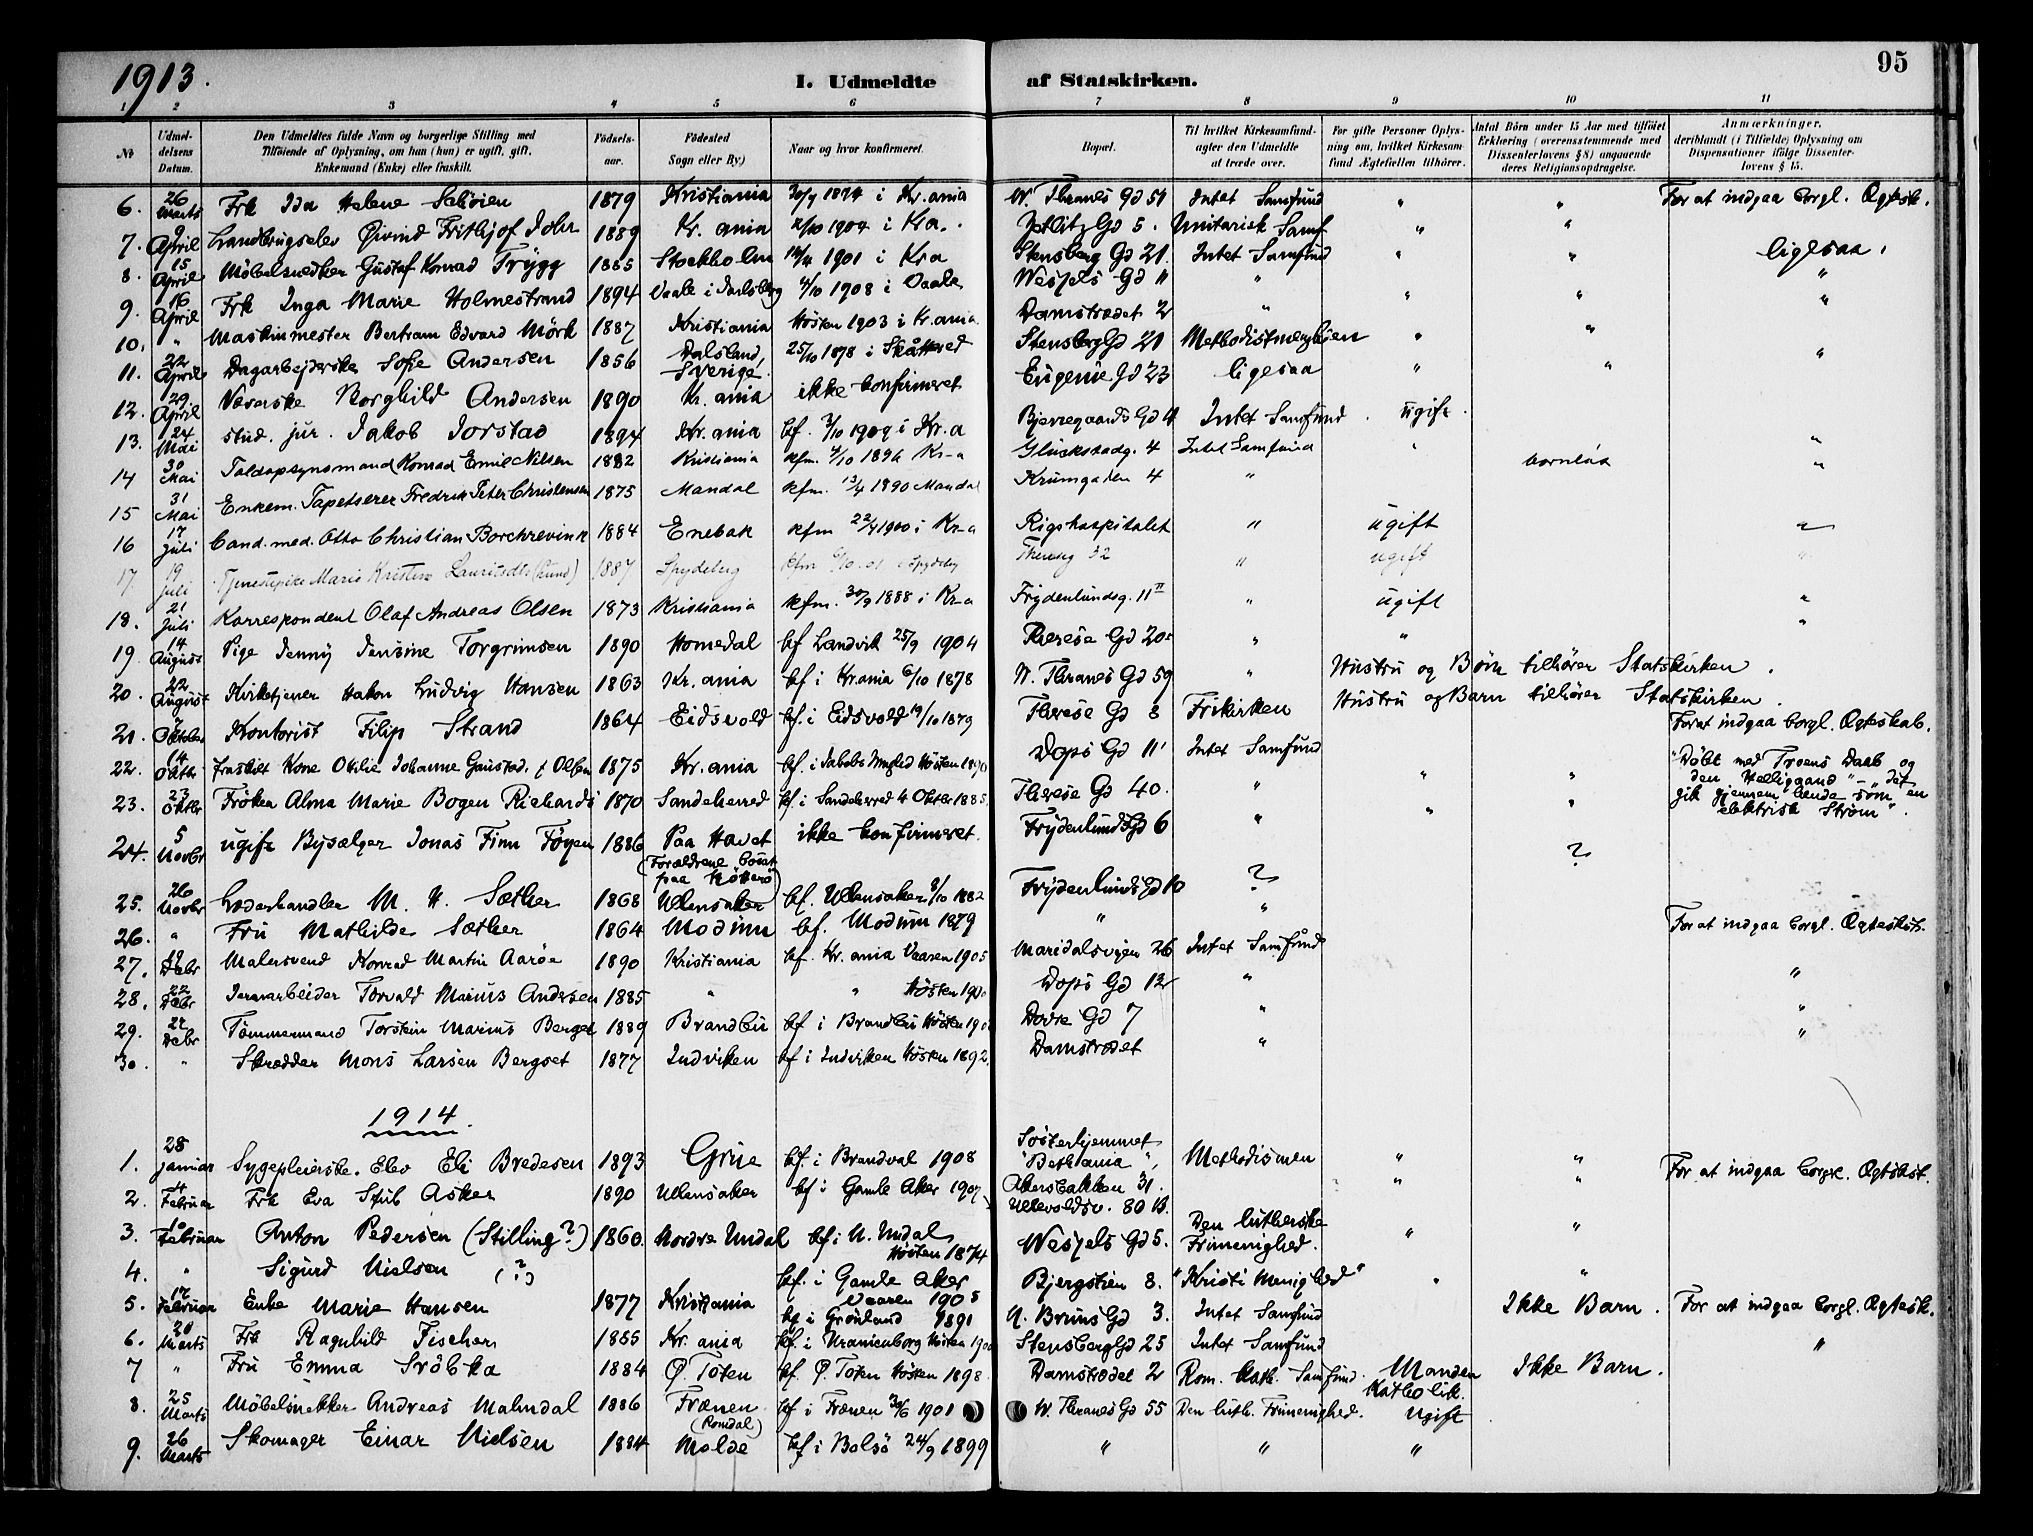 1913.
I. Udmeldte af Statskirken.
95
1 2 3 4 5 6 7 8 9 10 11
No
Udmel-
delsens
Datum.
Den Udmeldtes fulde Navn og borgerlige Stilling med
Tilføiende af Oplysning, om han (hun) er ugift, gift,
Enkemand (Enke) eller fraskilt.
Fødsels-
aar.
Fødested
Sogn eller By)
Naar og hvor konfirmeret.
Bopæl.
Til hvilket Kirkesamfund-
agter den Udmeldte
at træde over.
For gifte Personer Oplys-
ning om, hvilket Kirkesam-
fund Ægtefællen tilhører.
Antal Børn under 15 Aar med tilføiet
Erklæring (overensstemmende med
Dissenterlovens § 8) angaaende
deres Religionsopdragelse.
Anmærkninger,
deriblandt (i Tilfælde) Oplysning om
Dispensationer ifølge Dissenter-
lovens § 15.
6. 26 Marts Frk Ida Helene 1879 Kristiania i Kr.ania W. Thranes Gd 51 Intet Samfund " " For at indgaa borgl. Ægtesk.
7. 9 April Landbrugselev Øivind Frithjof 1889 Kr.ania 2/10 1904 i Kra. Gd 5. Unitarisk Samf. " "
8. 15 April Møbelsnedker Gustaf Konrad Trygg 1885 Stockholm 1901 i Kra Stensberg Gd 21. Intet Samfund " " ligesaa.
9. 16 April Frk Inga Marie Holmestrand 1894 Vaale i Jarlsberg 4/10 1908 i Vaale Wessels Gd 11 " " " "
10. " Maskinmester Bertram Edvard Mørk 1887 Kristiania Høsten 1903 i Kr.ania Damstrædet 2 " " " "
11. 22 April Dagarbejderske Sofie Andersen 1856 Dalsland, Sverige. 25/10 1878 i Stensberg Gd 21 " "
12. 29 April Væverske Borghild Andersen 1890 Kr.ania ikke konfirmeret Eugenie Gd 23 ligesaa " " "
13. 24 Mai stud. jur. Jakob Jorstad 1894 Kr.ania kf. 3/10 1909 i Kr.a Bjerregaards Gd 4 Intet Samfund. ugift.
14 30 Mai Toldopsynsmand Konrad Emil Nilsen 1882 Kristiania kfm. 4/10 1896 Kr-a Glücksstadg. 4 Intet Samfund " "
15 31 Mai Enkem. Tapetserer Fredrik Peter Christensen 1875 Mandal kfm. 13/4 1890 Mandal Krumgaten 4 " barnløs "
16 17 juli Cand. med. Otto Christian Borchrevink 1884 Enebak kfm 22/4 1900 i Kr-a Rigshospitalet " ugift "
17. 19 juli Tjenestepike Marie Kristine 1887 Spydeberg kfm 32 " ugift "
18. 21 juli Korrespondent Olaf Andreas Olsen 1873 Kristiania kfm. 30/9 1888 i Kr-a Frydenlundsg. 11 II " ugift "
19. 14 August Pige Jenny Torgrimsen 1890 Homedal kf Landvik 25/9 1904 Therese Gd 20 " " "
20. 22 August Kirketjener Hakon Ludvig Hansen 1863 Kr.ania kf. i Kr.ania 6/10 1878 W. Thranes Gd 59 " Hustru og Børn tilhører Statskirken.
21. Oktober Kontorist Filip Strand 1864 Eidsvold kf. i Eidsvold 19/10 1879 Therese Gd 8 Frikirken Hustru og Barn tilhører Statskirken.
22. 14 fraskilt Kone Otilie Johanne Gaustad, f Olsen 1875 Kr.ania kf. i Jakobs Høsten Dops Gd 11 Intet Samfund For at indgaa borgl. Ægteskab.
23. 23 Oktbr Frøken Alma Marie Bogen Richards 1870 Sandeherred kf. i Sandeherred 4 Oktbr 1885. Therese Gd 40. " " " "Døbt med Troens Daab og
den Helligaand" - det
gik gjennem hende som en
elektrisk Strøm".
24. 5 Novbr ugift Bysælger Jonas Finn Føyen 1886 Paa Havet ikke konfirmeret. Frydenlunds Gd 6 " " "
(Forældrene bosat
paa
25. 26 Novbr Læderhandler M. H. Sæther 1868 Ullensaker kf. Ullensaker 8/10 1882 Frydenlunds Gd 10 ? ?
26. " Fru Mathilde Sæther 1864 Modum kf. Modum 1879 " "
27. Debr Malersvend Konrad Martin Aarøe 1890 Kristiania kf. Kr.ania Vaaren 1905 Maridalsvejen 26 Intet Samfund For at indgaa borgl. Ægtesk.
28. 22 Debr Jernarbeider Torvald Marius Andersen 1885 " " Høsten Dops Gd 12 " "
29. 22 Debr Tømmermand Torstein Marius Berget 1889 Brandbu kf i Brandbu Høsten Dovre Gd 7 " "
30. " Skrædder Mons Larsen Bergset 1877 Indviken kf i Indviken Høsten 1892. Damstrædet " "
1914.
1. 28 januar Sygepleierske. Elev Eli Bredesen 1893 Grue kf. i Brandval 1908 Søsterhjemmet "Bethania", Methodismen " "
2. 4 Februar Frk Eva Asker 1890 Ullensaker kf i Gamle Aker 1907 Akersbakken 31. " " For at indgaa borgl. Ægtesk.
Ullevoldsv. 80 B.
3. 10 Februar Anton Pedersen (Stilling?) 1860. Nordre Undal kf i N. Undal Høsten 1874 Wessels Gd 5. Den lutherske Frimenighed. " "
4. " Sigurd Nielsen (?) kf. i Gamle Aker Vaaren 1905 Bjergstien 8. "Kristi Menighed" " "
5. 17 Februar Enke Marie Hansen 1877 Kristiania kf i Grønland 1891 A. Bruns Gd 3. Intet Samfund Ikke Barn. For at indgaa borgl. Ægtesk.
6. 20 Marts Frk Ragnhild Fischer 1885 Kr.ania kf. i Uranienborg Høsten Stensberg Gd 25 Intet Samfund "
7 " Fru Emma 1884 Ø. Toten kf. Ø. Toten Høsten 1898. Damstrædet 2 Rom. kath. Samfund. Manden Katholik. Ikke Barn.
8. 25 Marts Møbelsnekker Andreas Malmdal 1886 Frænen (Romdal) kf i Frænen 1901 W. Thranes Gd 55 Den luth. Frimenighed. Ugift
9. 26 Marts Skomager Einar Nielsen 1884 Molde kf i Bolsø 24/9 1899 " " "